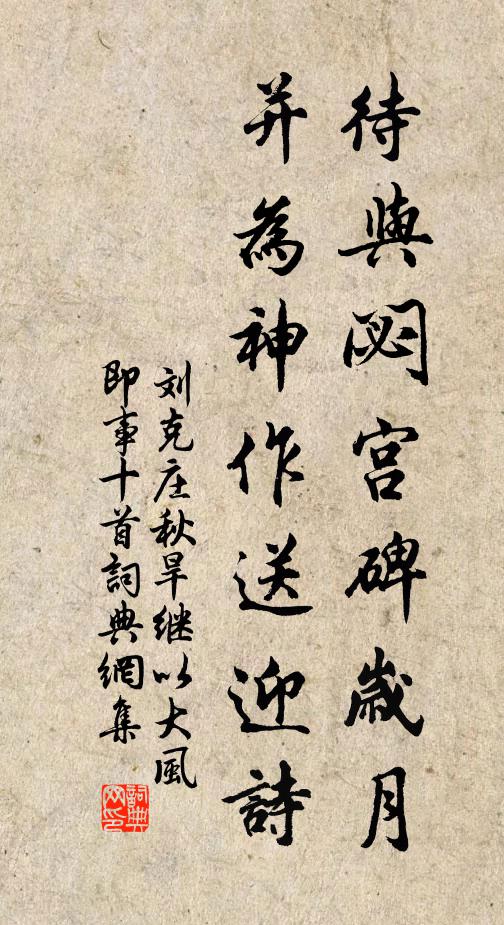 待與閟宫碑歲月
并為神作送迎詩
刘克庄秋旱继以大風
即事十首詞典網集
詞典網印